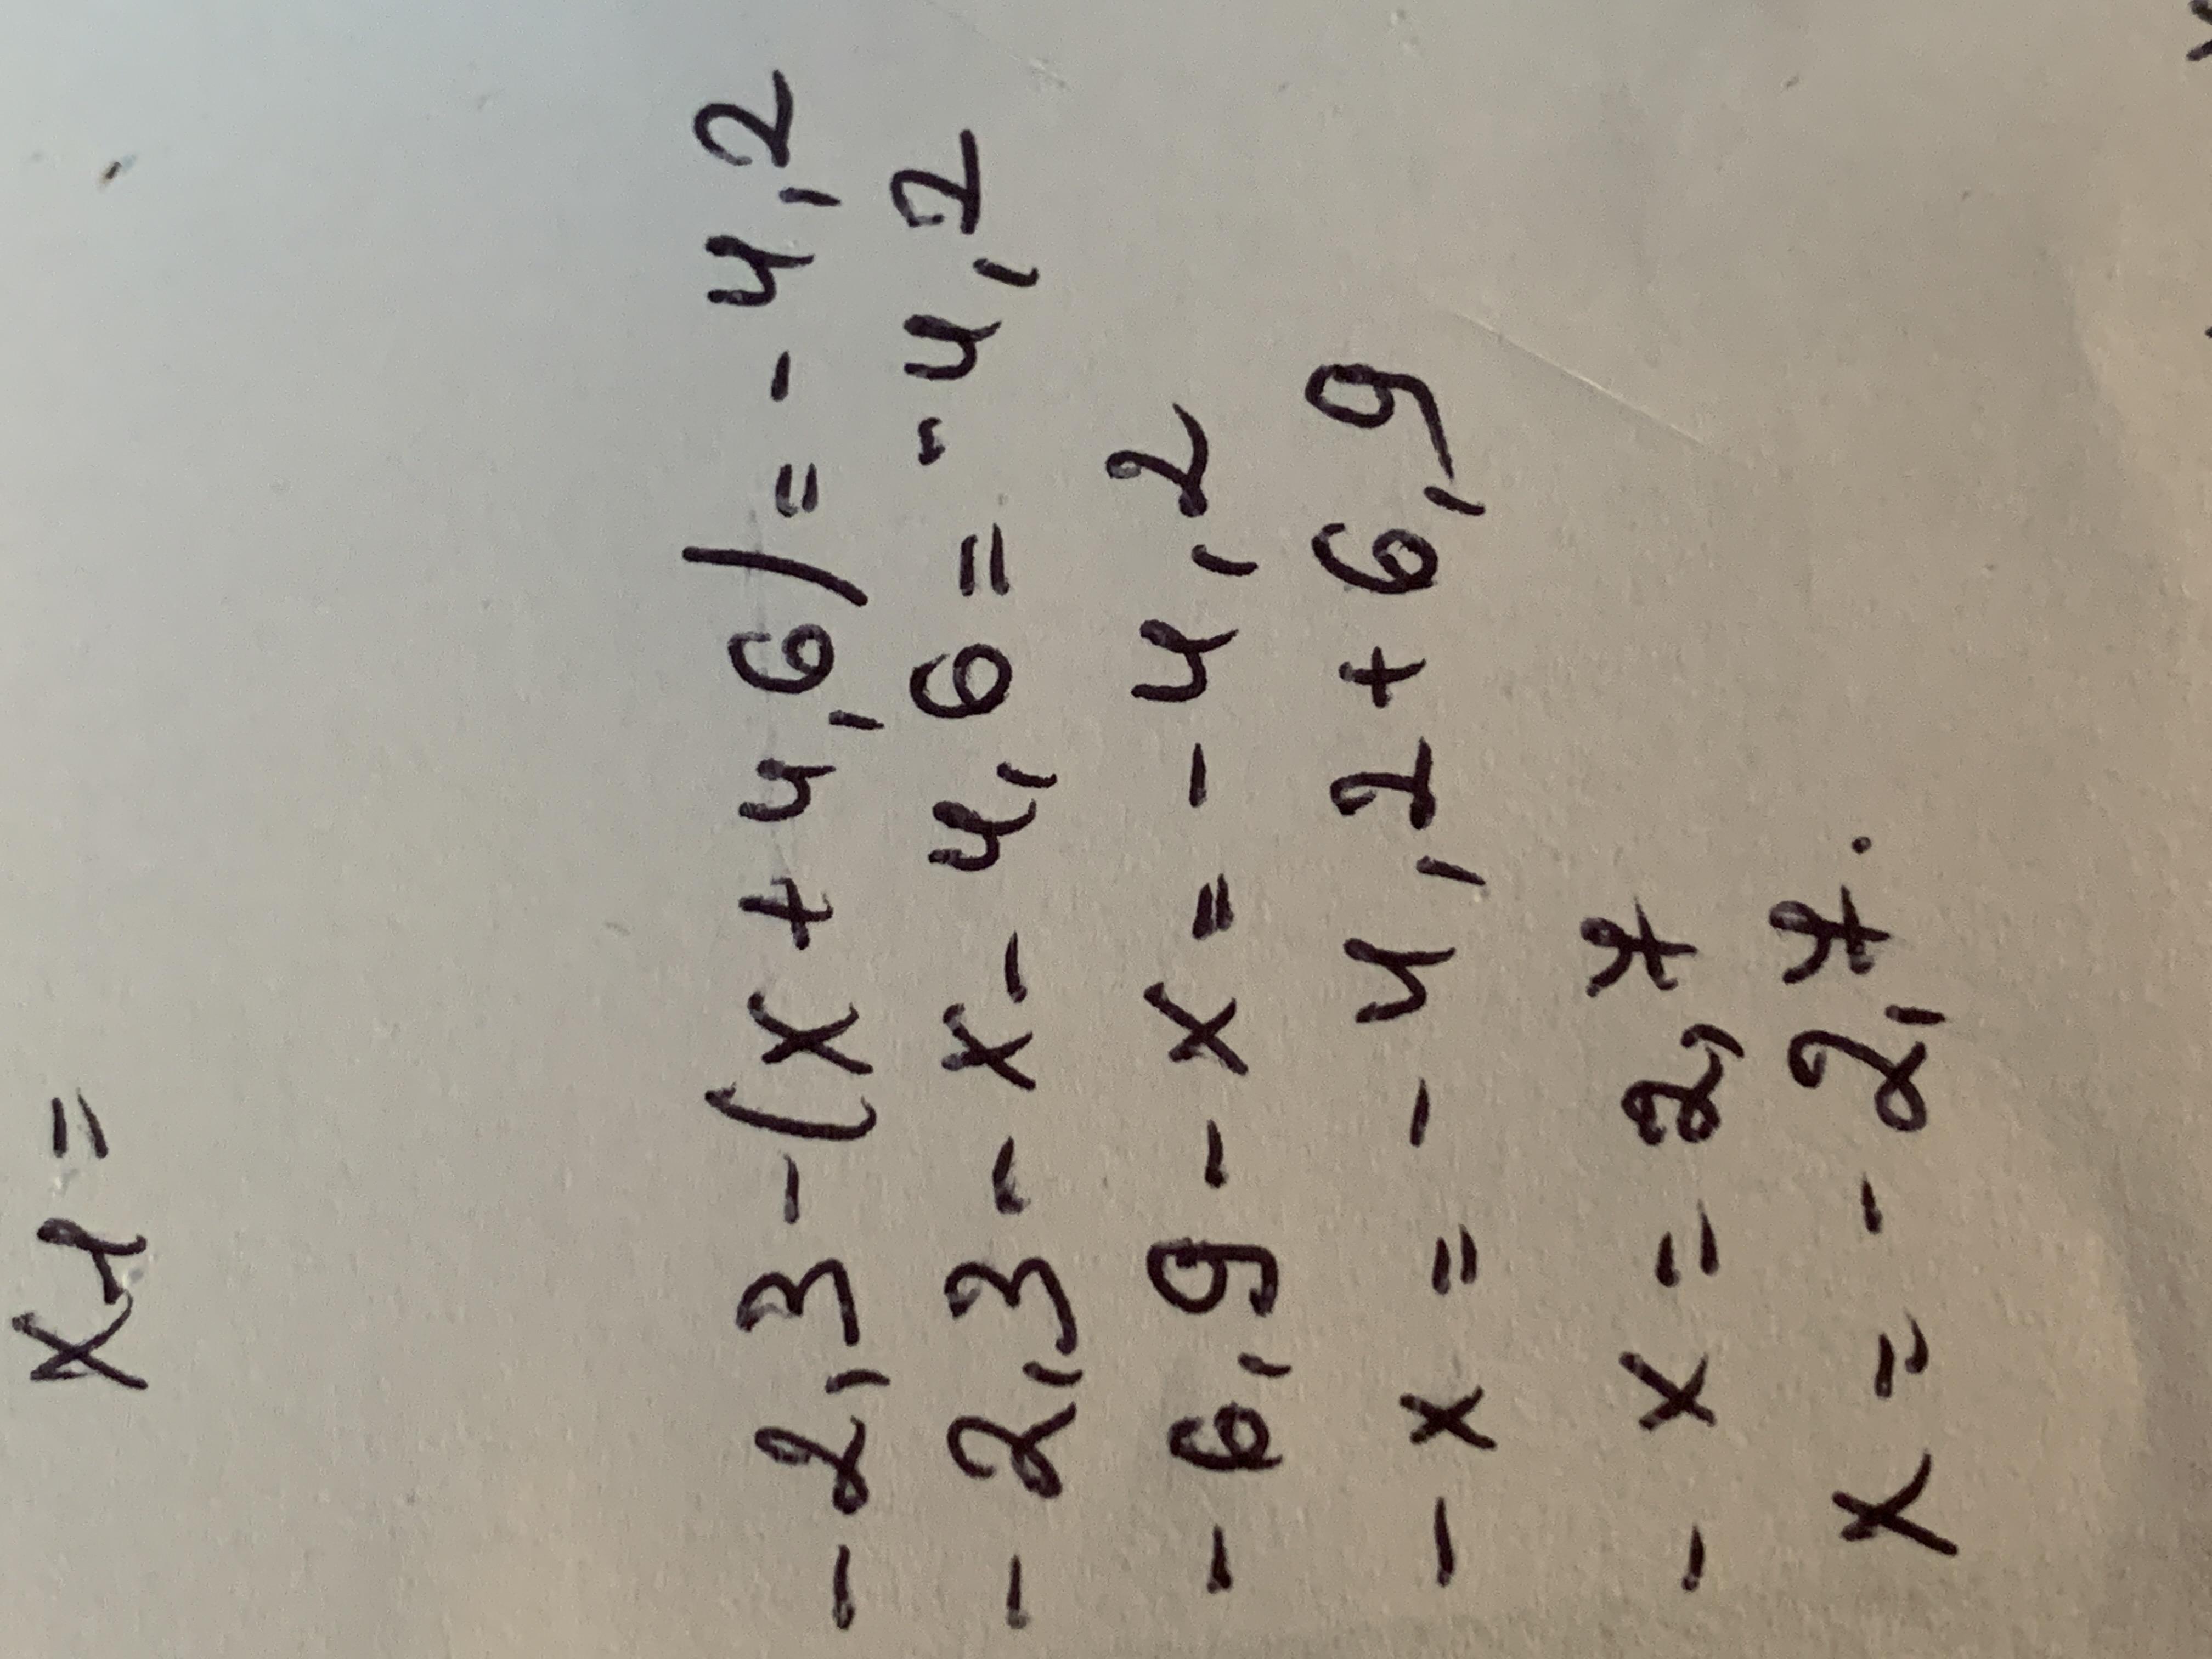 x4 =
- 2,3 - (x + 4,6) = - 4,2
- 2,3 - x - 4,6 = - 4,2
- 6,9 - x = - 4,2
- x = - 4,2 + 6,9
- x = 2,7
x = - 2,7.